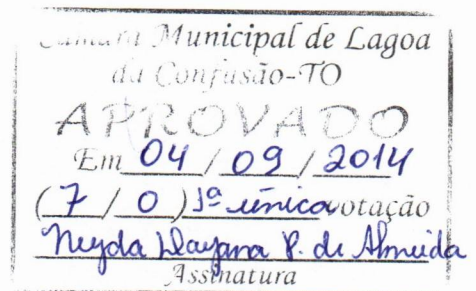 Câmara Municipal de Lagoa
da Confusão-TO
APROVADO
Em 04 / 09 / 2014
( 7 / 0 ) 1ª única votação
Neyda Dayana P. de Almeida
Assinatura